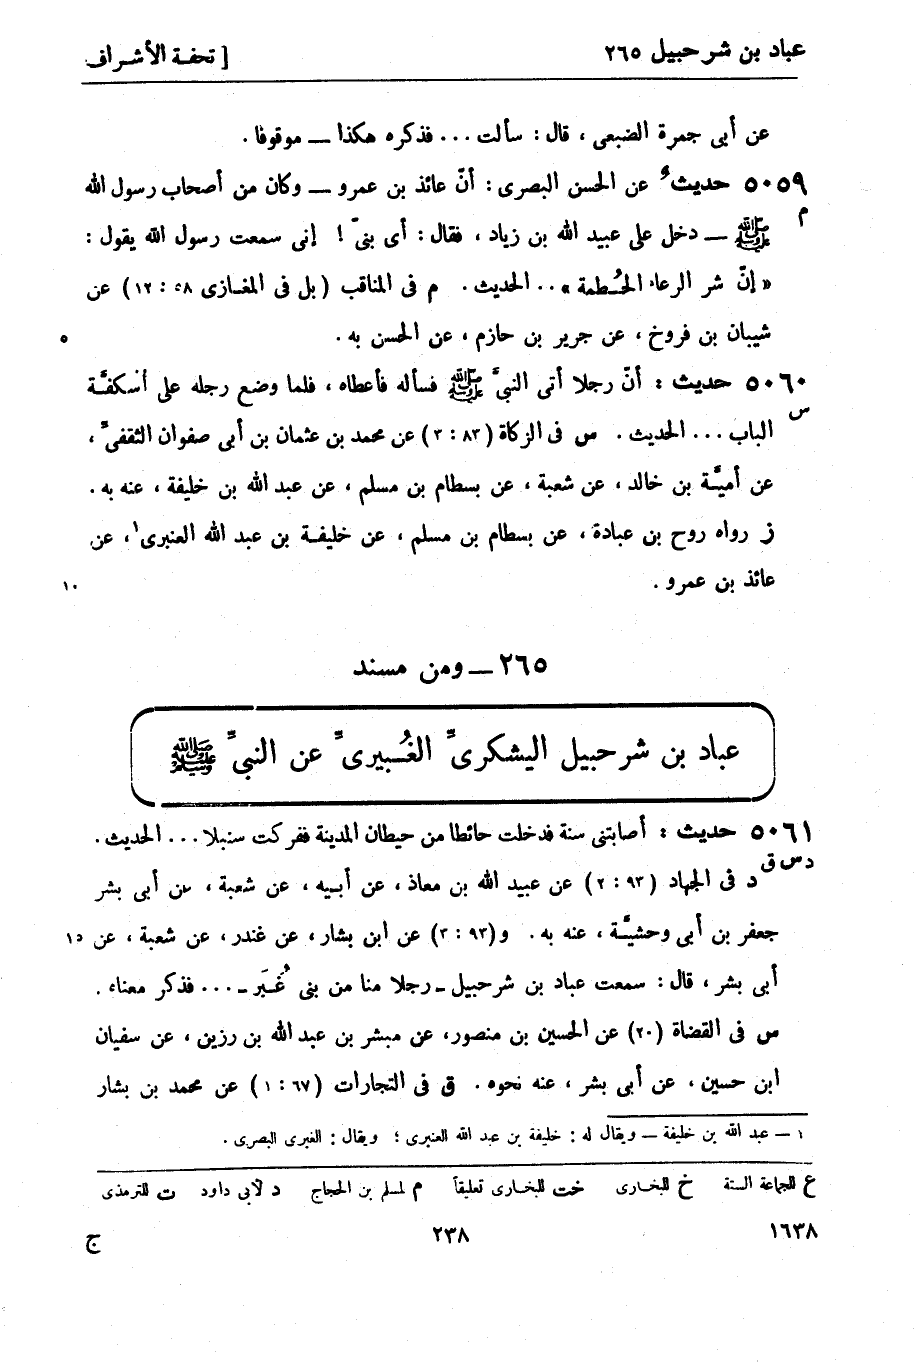 عباد بن شرحبيل ٢٦٥
[ تحفة الأشراف
عن أبى جمرة الضبعى ، قال : سألت ... فذكره هكذا — موقوفا .
٥٠٥٩ حديثٌ عن الحسن البصرى : أنّ عائذ بن عمرو — وكان من أصحاب رسول الله
م
ﷺ — دخل على عبيد الله بن زياد ، فقال : أى بنىّ ! إنى سمعت رسول الله يقول :
« إنّ شر الرعاء الحُطمة » .. الحديث . م فى المناقب ( بل فى المغازى ٥٨ : ١٢ ) عن
شيبان بن فروخ ، عن جرير بن حازم ، عن الحسن به .
٥
٥٠٦٠ حديث : أنّ رجلا أتى النبىَّ ﷺ فسأله فأعطاه ، فلما وضع رجله على أسكفَّة
س
الباب ... الحديث . س فى الزكاة ( ٨٣ : ٣ ) عن محمد بن عثمان بن أبى صفوان الثقفىّ ،
عن أميَّة بن خالد ، عن شعبة ، عن بسطام بن مسلم ، عن عبد الله بن خليفة ، عنه به .
ز رواه روح بن عبادة ، عن بسطام بن مسلم ، عن خليفة بن عبد الله العنبرى١ ، عن
عائذ بن عمرو .
١٠
٢٦٥ — ومن مسند
عباد بن شرحبيل اليشكرىِّ الغُبيرىِّ عن النبىِّ ﷺ
٥٠٦١ حديث : أصابتنى سنة فدخلت حائطا من حيطان المدينة ففركت سنبلا ... الحديث .
د س ق
د فى الجهاد ( ٩٣ : ٢ ) عن عبيد الله بن معاذ ، عن أبيه ، عن شعبة ، عن أبى بشر
جعفر بن أبى وحشيَّة ، عنه به . و(٩٣ : ٣) عن ابن بشار ، عن غندر ، عن شعبة ، عن
١٥
أبى بشر ، قال : سمعت عباد بن شرحبيل ـ رجلا منا من بنى غُبَر ـ ... فذكر معناه .
س فى القضاة (٢٠) عن الحسين بن منصور ، عن مبشر بن عبد الله بن رزين ، عن سفيان
ابن حسين ، عن أبى بشر ، عنه نحوه . ق فى التجارات ( ٦٧ : ١ ) عن محمد بن بشار
١ — عبد الله بن خليفة — ويقال له : خليفة بن عبد الله العنبرى ؛ ويقال : الغبرى البصرى .
ع للجماعة الستة خ للبخارى خت للبخارى تعليقاً م لمسلم بن الحجاج د لأبى داود ت للترمذى
١٦٣٨
٢٣٨
ج